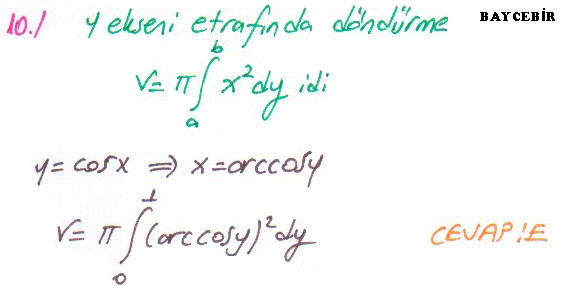 10.) y ekseni etrafında döndürme BAYCEBİR
V= π∫ₐᵇ x²dy idi
y=cosx ⇒ x=arccosy
V= π∫₀¹(arccosy)²dy CEVAP:E